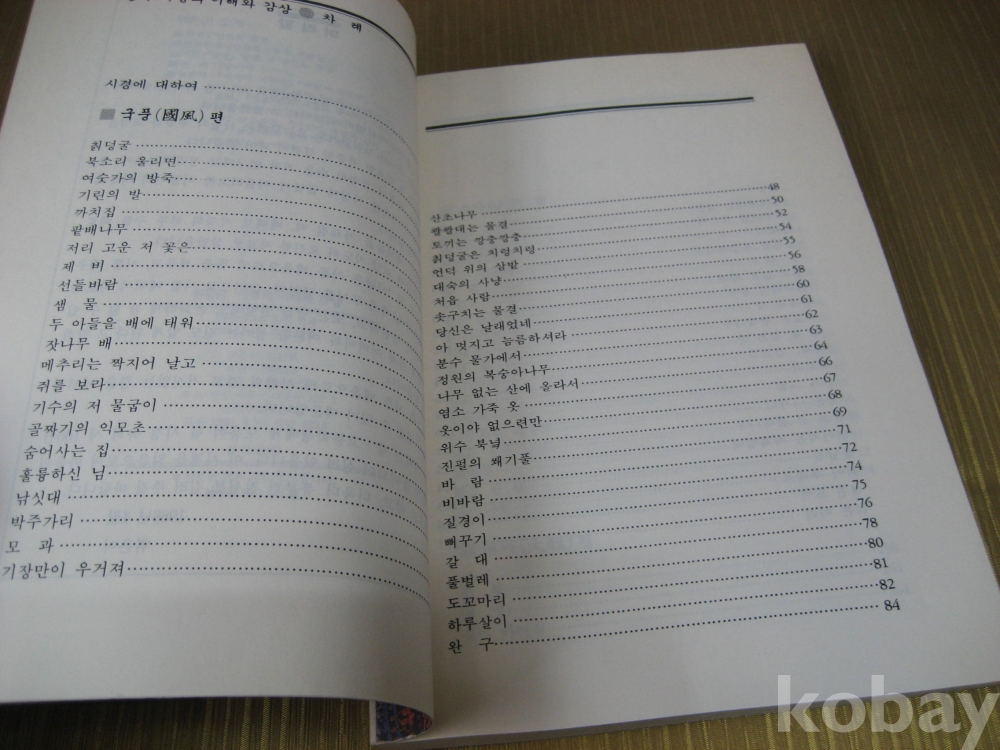 이해와 감상 차 례
시경에 대하여
국풍(國風) 편
칡덩굴
북소리 울리면
여숫가의 방죽
기린의 발
까치집
팥배나무
저리 고운 저 꽃은
제 비
선들바람
샘 물
두 아들을 배에 태워
잣나무 배
메추리는 짝지어 날고
쥐를 보라
기수의 저 물굽이
골짜기의 익모초
숨어사는 집
훌륭하신 님
낚싯대
박주가리
모 과
기장만이 우거져
산초나무 48
물결 50
토끼는 깡충깡충 52
칡덩굴은 치렁치렁 54
언덕 위의 삼밭 55
대숙의 사냥 56
처음 사람 58
솟구치는 물결 60
당신은 날래었네 61
아 멋지고 늠름하셔라 62
분수 물가에서 63
정원의 복숭아나무 64
나무 없는 산에 올라서 66
염소 가죽 옷 67
옷이야 없으련만 68
위수 북녘 69
진펄의 쐐기풀 71
바 람 72
비바람 74
질경이 75
뻐꾸기 76
갈 대 78
풀벌레 80
도꼬마리 81
하루살이 82
완 구 84
kobay